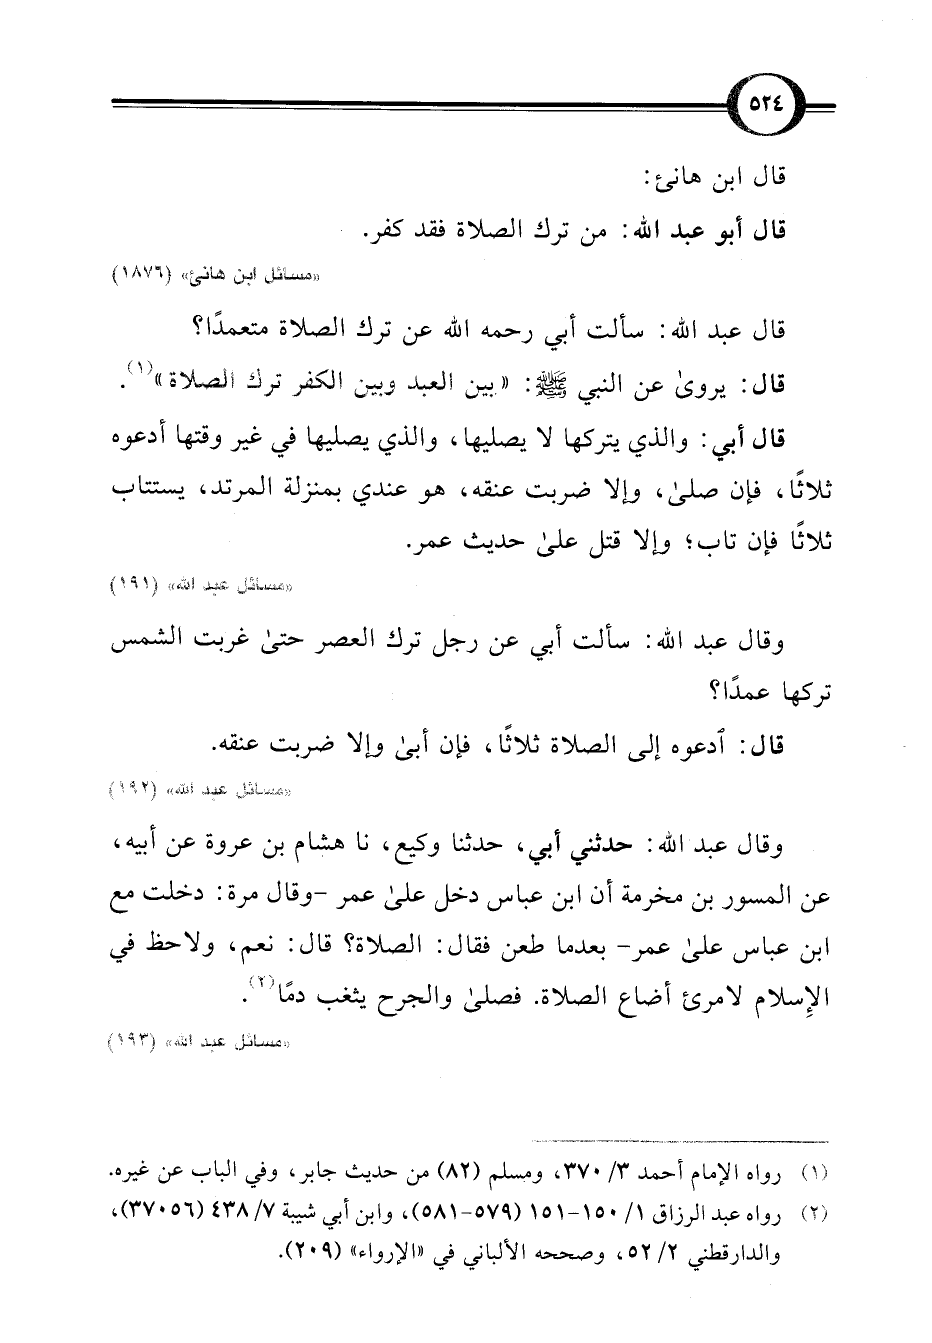 ٥٢٤
قال ابن هانئ:
قال أبو عبد الله: من ترك الصلاة فقد كفر.
«مسائل ابن هانئ» (١٨٧٦)
قال عبد الله: سألت أبي رحمه الله عن ترك الصلاة متعمدًا؟
قال: يروىٰ عن النبي ﷺ: «بين العبد وبين الكفر ترك الصلاة»(١).
قال أبي: والذي يتركها لا يصليها، والذي يصليها في غير وقتها أدعوه
ثلاثًا، فإن صلىٰ، وإلا ضربت عنقه، هو عندي بمنزلة المرتد، يستتاب
ثلاثًا فإن تاب؛ وإلا قتل علىٰ حديث عمر.
«مسائل عبد الله» (١٩١)
وقال عبد الله: سألت أبي عن رجل ترك العصر حتىٰ غربت الشمس
تركها عمدًا؟
قال: ٱدعوه إلى الصلاة ثلاثًا، فإن أبىٰ وإلا ضربت عنقه.
«مسائل عبد الله» (١٩٢)
وقال عبد الله: حدثني أبي، حدثنا وكيع، نا هشام بن عروة عن أبيه،
عن المسور بن مخرمة أن ابن عباس دخل علىٰ عمر -وقال مرة: دخلت مع
ابن عباس علىٰ عمر- بعدما طعن فقال: الصلاة؟ قال: نعم، ولاحظ في
الإسلام لامرئ أضاع الصلاة. فصلىٰ والجرح يثغب دمًا(٢).
«مسائل عبد الله» (١٩٣)
(١) رواه الإمام أحمد ٣/ ٣٧٠، ومسلم (٨٢) من حديث جابر، وفي الباب عن غيره.
(٢) رواه عبد الرزاق ١/ ١٥٠-١٥١ (٥٧٩-٥٨١)، وابن أبي شيبة ٧/ ٤٣٨ (٣٧٠٥٦)،
والدارقطني ٢/ ٥٢، وصححه الألباني في «الإرواء» (٢٠٩).